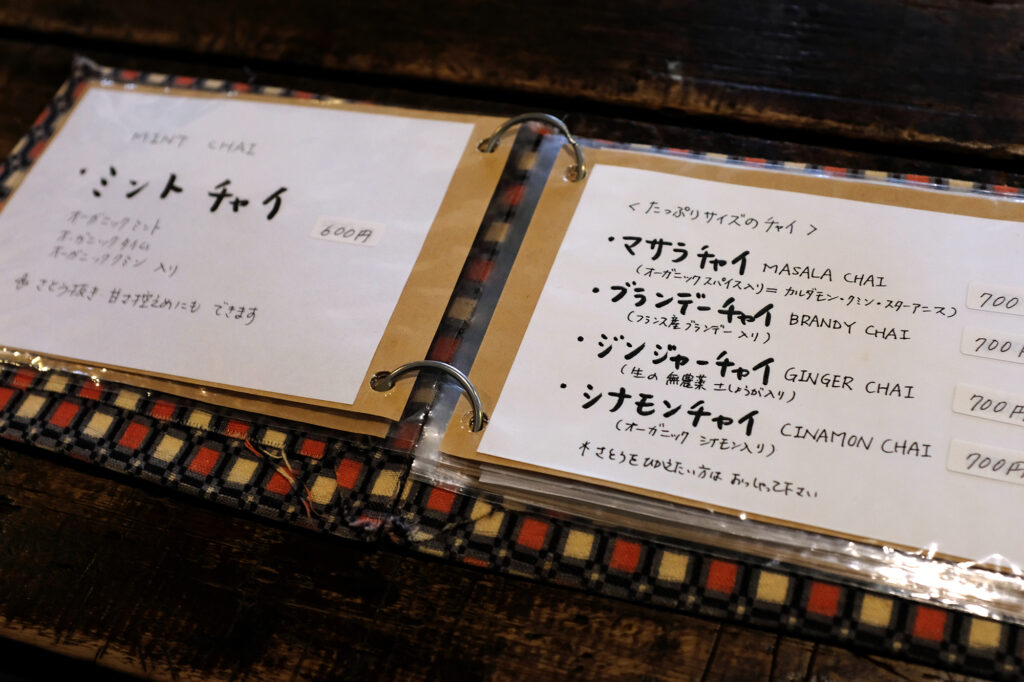 MINT CHAI
・ミント チャイ
オーガニックミント
オーガニックタイム
オーガニッククミン 入り
600円
さとう抜き 甘さ控えめにも できます
<たっぷりサイズのチャイ>
・マサラチャイ MASALA CHAI
(オーガニックスパイス入り=カルダモン・クミン・スターアニス)
700
・ブランデーチャイ BRANDY CHAI
(フランス産ブランデー入り)
700円
・ジンジャーチャイ GINGER CHAI
(生の無農薬 土しょうが入り)
700円
・シナモンチャイ CINAMON CHAI
(オーガニック シナモン入り)
700円
*さとうをひかえたい方は おっしゃって下さい